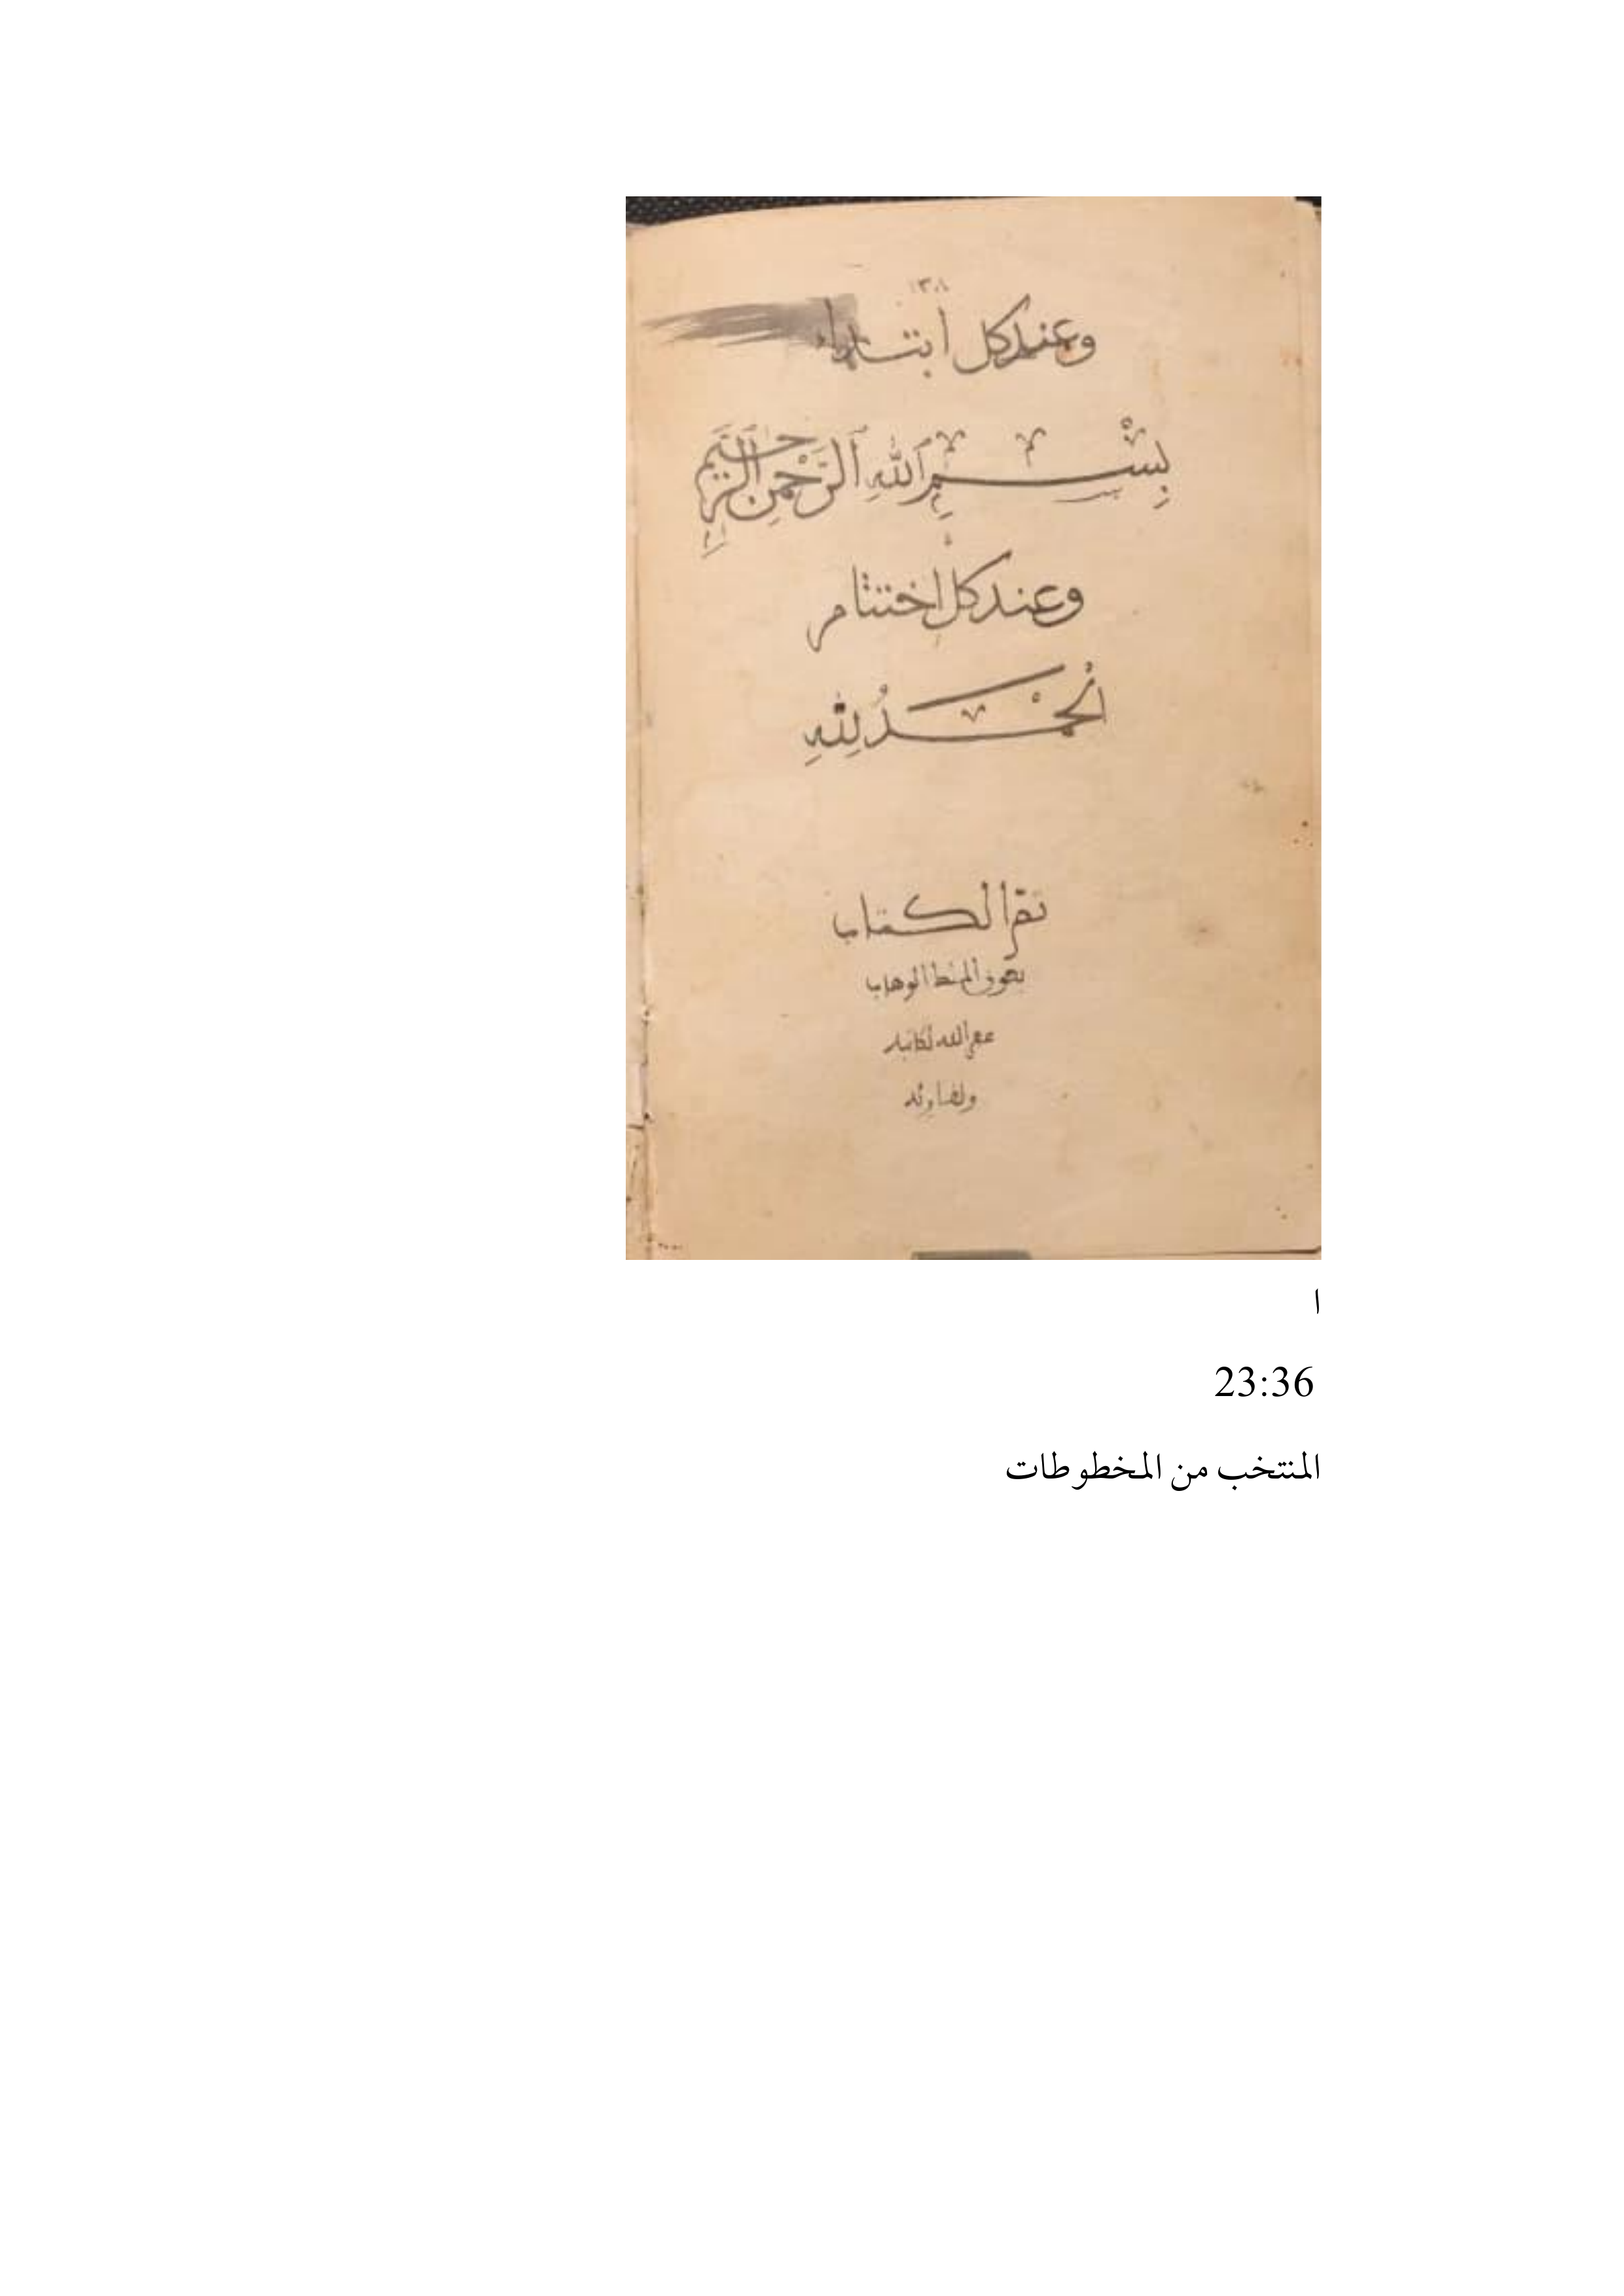 ١٣٠١
وعند كل ابتداء
بِسْمِ اللهِ الرَّحْمٰنِ الرَّحِيمِ
وعند كل اختتام
الْحَمْدُ لِلّٰهِ
تمّ الكتاب
بعون الوهاب
غفر الله لكاتبه
ولقارئه
ا
23:36
المنتخب من المخطوطات